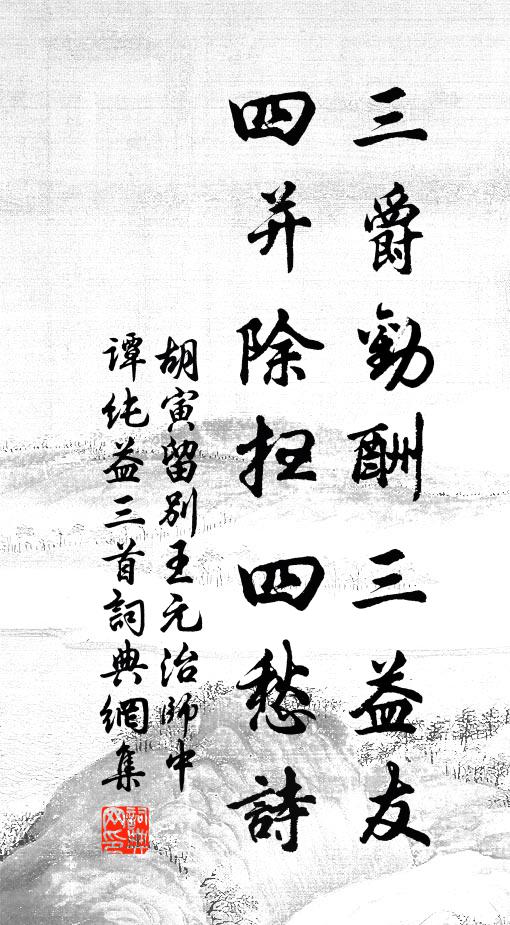 三爵勸酬三益友
四并除扫四愁詩
胡寅留別王元治師中
谭纯益三首詞典網集